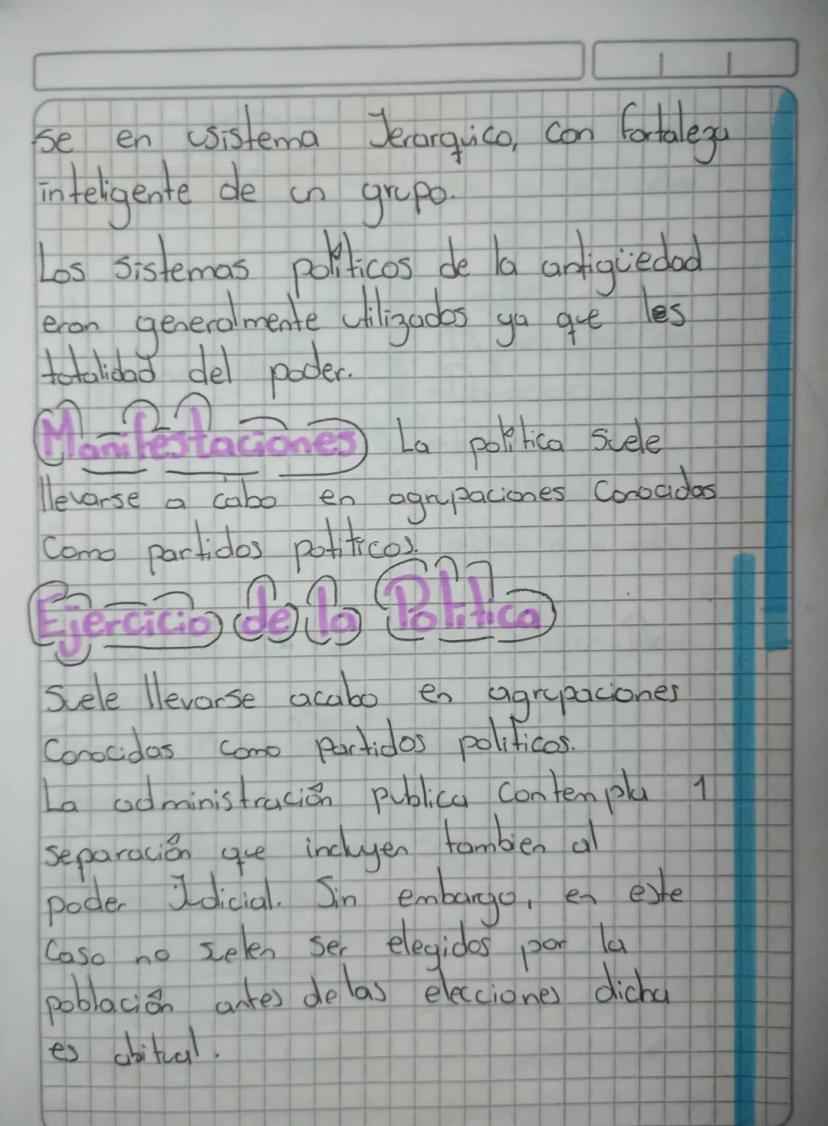 se en usistema Jerarquico, con fortaleza
inteligente de un grupo.
Los sistemas políticos de la antigüedad
eran generalmente utilizados ya que les
totalidad del poder.
Manifestaciones La política suele
llevarse a cabo en agrupaciones Conocidas
Como partidos políticos.
Ejercicio de la Politica
Suele llevarse acabo en agrupaciones
Conocidas como partidos políticos.
La administración publica Contempla 1
separación que incluyen tambien al
poder Judicial. Sin embargo, en este
Caso no selen ser elegidos por la
población antes de las elecciones dicha
es abitual.